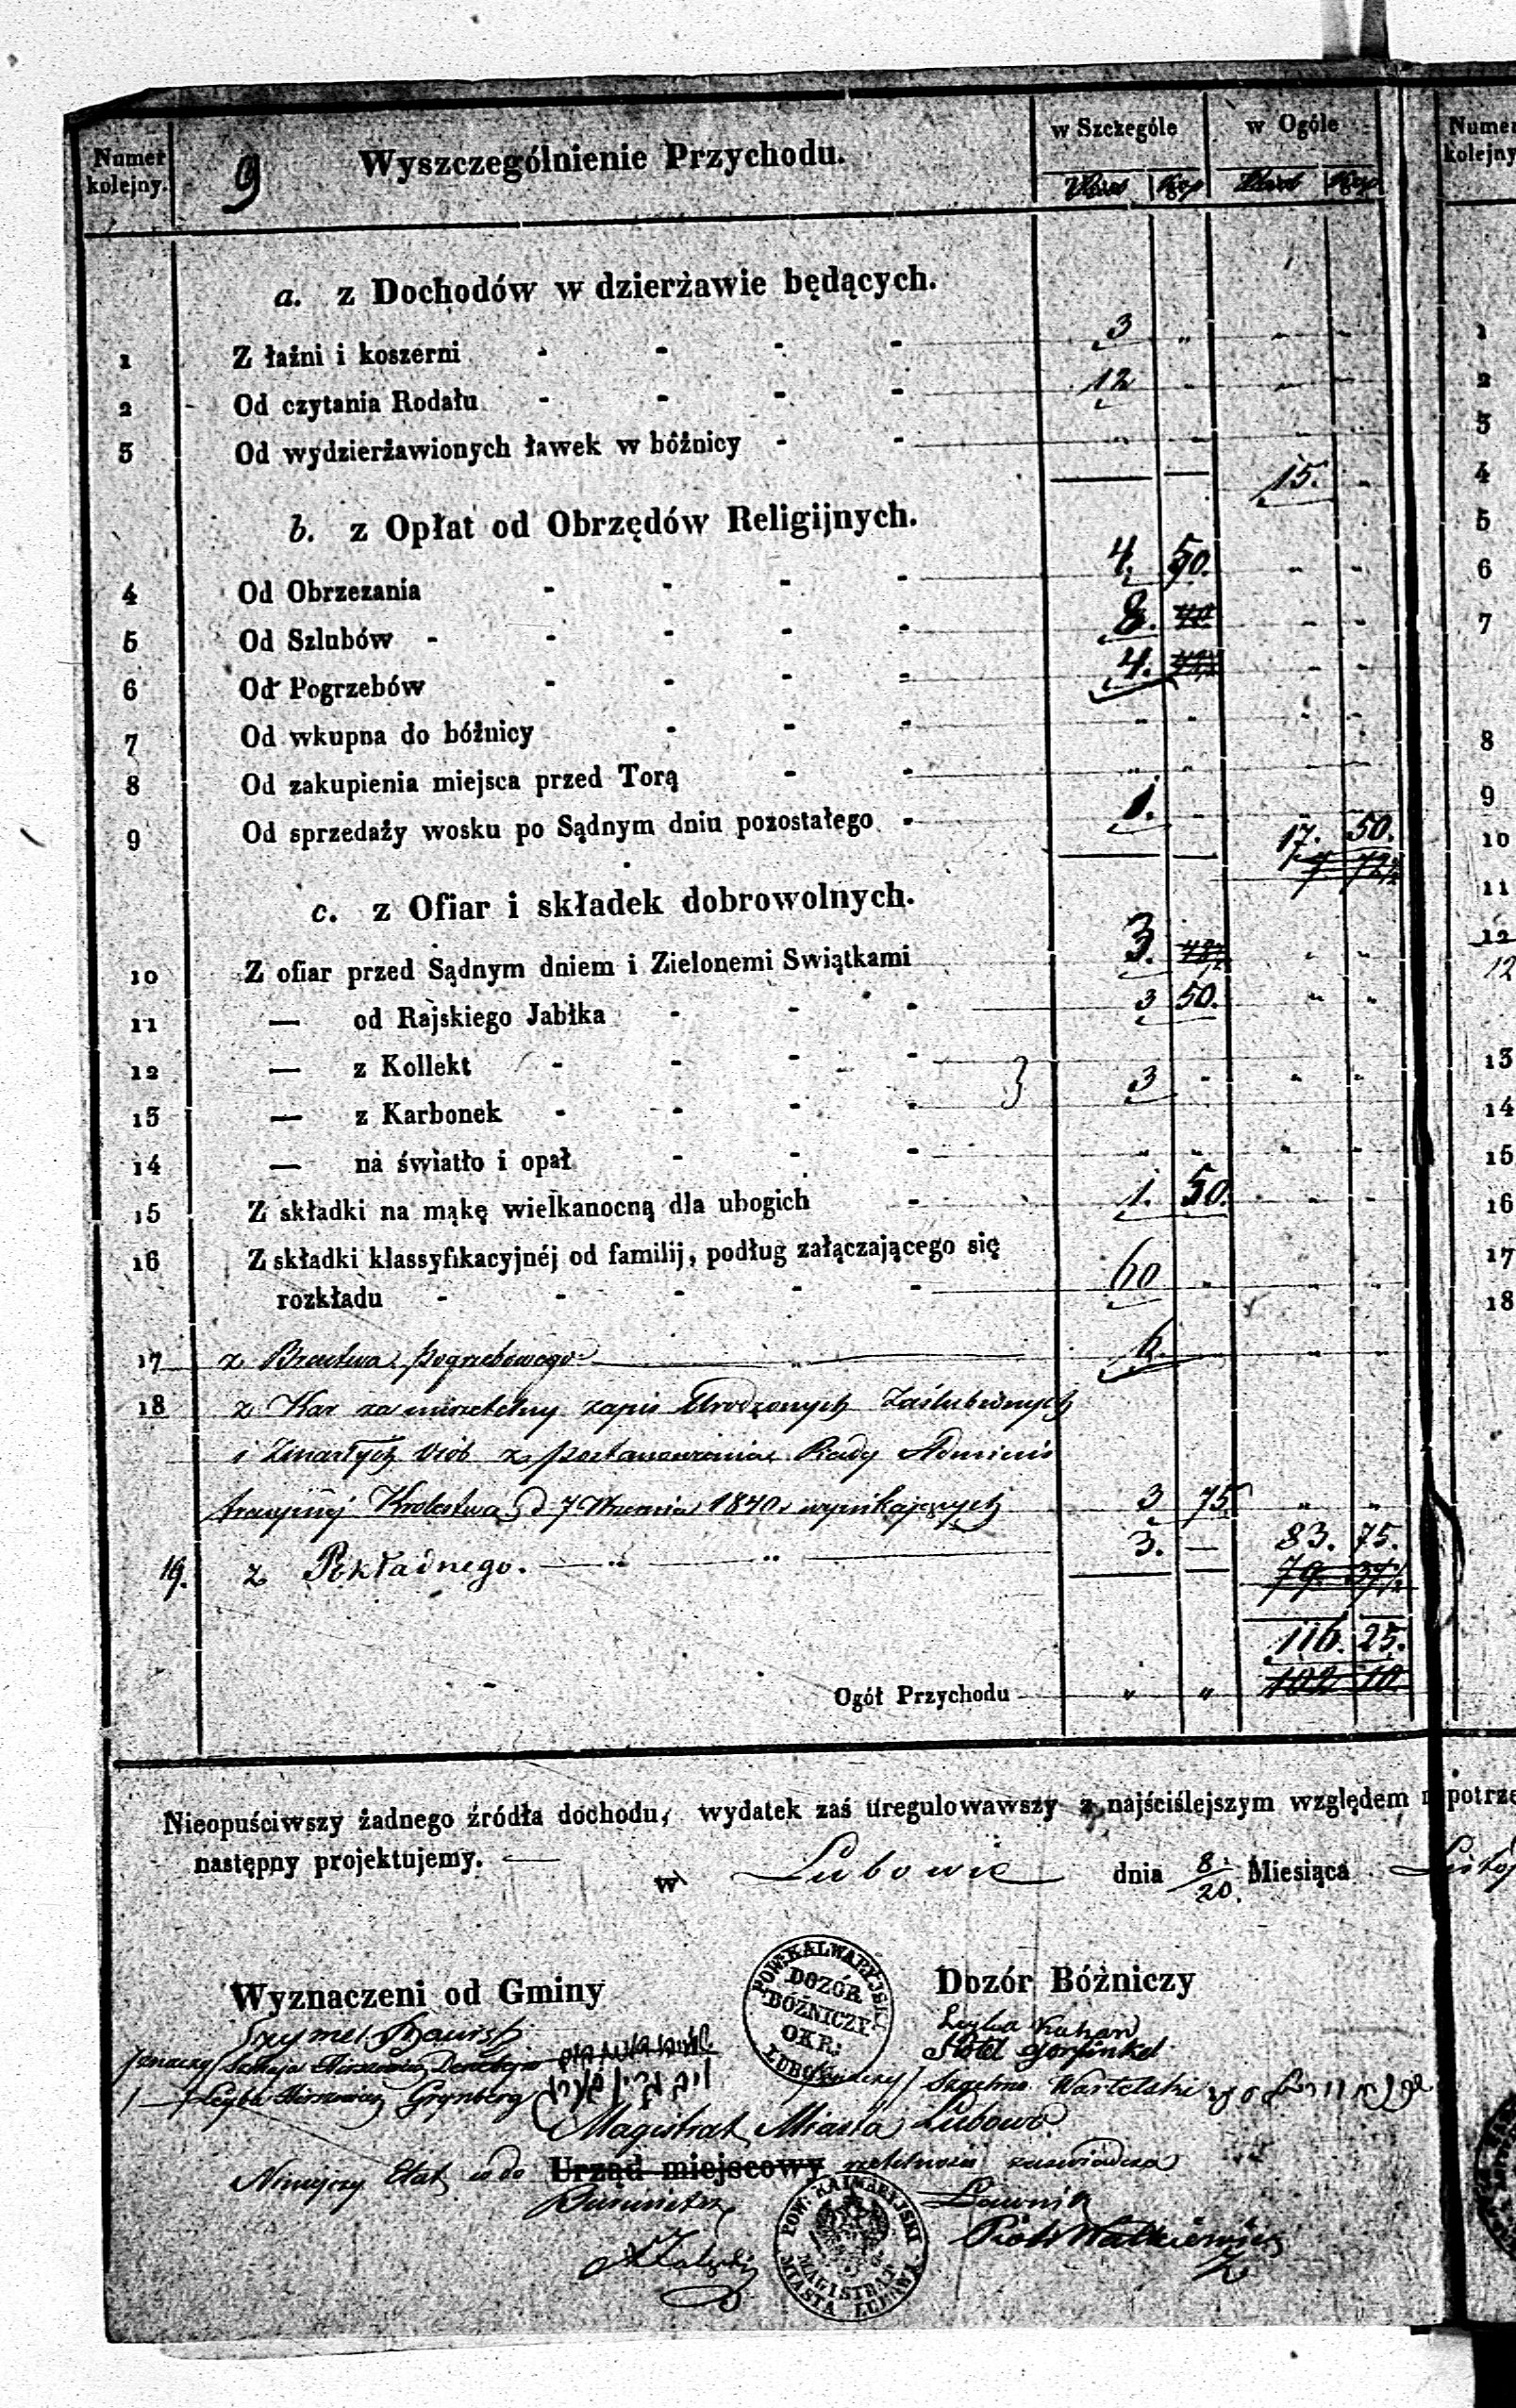 Numer kolejny.
9
Wyszczególnienie Przychodu.
w Szczególe
w Ogóle
Numer kolejny
a. z Dochodów w dzierżawie będących.
1 Z łaźni i koszerni - - - - 3 „ - -
2 Od czytania Rodału - - - - 12 - - -
3 Od wydzierżawionych ławek w bóżnicy - - - - - -
15. -
b. z Opłat od Obrzędów Religijnych.
4 Od Obrzezania - - - - 4. 50. - -
5 Od Szlubów - - - - - 8. 40 - -
6 Od Pogrzebów - - - - 4. - -
7 Od wkupna do bóżnicy - - - - - - -
8 Od zakupienia miejsca przed Torą - - - - - -
9 Od sprzedaży wosku po Sądnym dniu pozostałego - 1. -
17. 50.
c. z Ofiar i składek dobrowolnych.
10 Z ofiar przed Sądnym dniem i Zielonemi Swiątkami 3. - -
11 — od Rajskiego Jabłka - - - 3 50. - -
12 — z Kollekt - - - -
13 — z Karbonek - - - - } 3 - - -
14 — na światło i opał - - - - - - -
15 Z składki na mąkę wielkanocną dla ubogich - 1. 50. - -
16 Z składki klassyfikacyjnéj od familij, podług załączającego się
rozkładu - - - - - 60 - - -
17 z Bractwa pogrzebowego 6. - - -
18 z Kar za nierzetelny zapis Urodzonych Zaślubionych
i Zmarłych Osób z postanowienia Rady Adminis
tracyjnej Królestwa d 7 Września 1840 wynikających 3 75 „ „
83. 75.
19. z Pokładnego. — „ — „ — 3. —
79. 37½
116. 25.
Ogół Przychodu „ „ 102 10
Nieopuściwszy żadnego źródła dochodu, wydatek zaś uregulowawszy z najściślejszym względem
następny projektujemy. — w Lubowie dnia 8/20. Miesiąca
Wyznaczeni od Gminy
Dozór Bóżniczy
POW: KALWARYJSKI
DOZÓR
BÓŻNICZY
OKR:
Leyba Kahan
Leyba Hirszowicz Grynberg
Magistrat Miasta Lubowo
Niniejszy Etat co do Urząd miejscowy rzetelności zaświadcza
Burmistrz
Ławnik
Piotr Watkiewicz
POW: KALWARYJSKI
MAGISTRAT
MIASTA LUBOWA
1
2
3
4
5
6
7
8
9
10
11
12
12
13
14
15
16
17
18